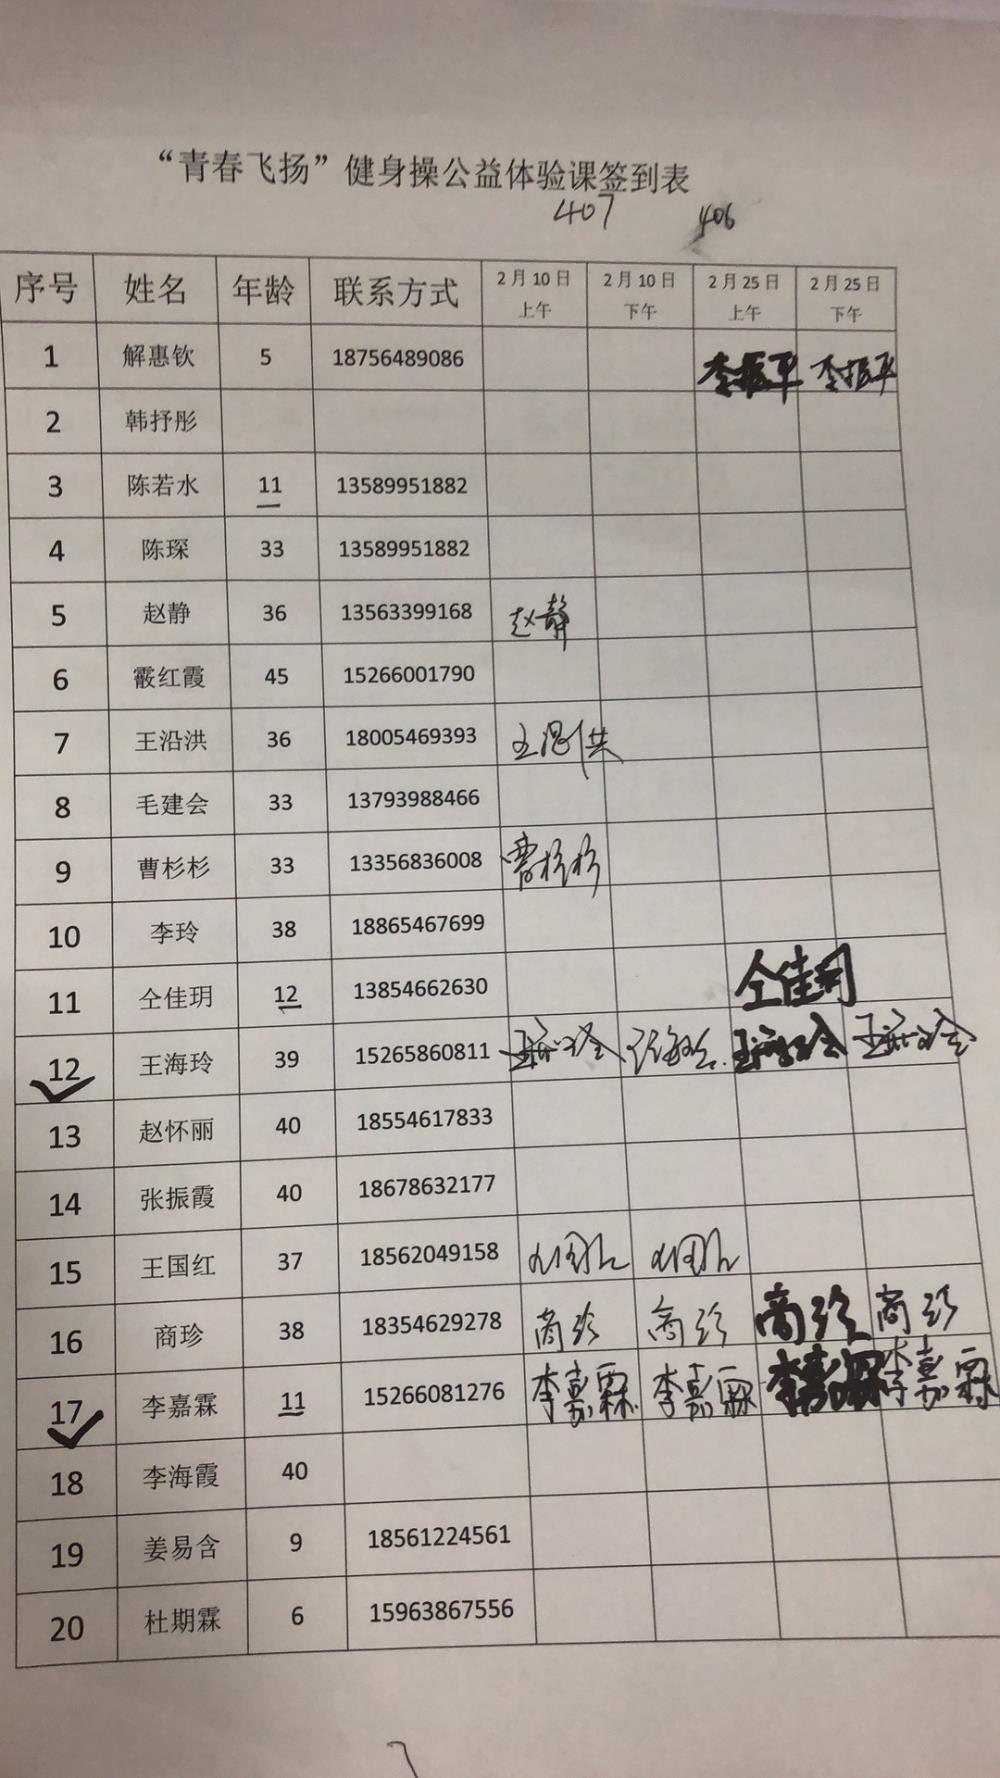 “青春飞扬”健身操公益体验课签到表
407 406
序号 姓名 年龄 联系方式 2月10日上午 2月10日下午 2月25日上午 2月25日下午
1 解惠钦 5 18756489086 李振平 李振平
2 韩抒彤
3 陈若水 11 13589951882
4 陈琛 33 13589951882
5 赵静 36 13563399168 赵静
6 霰红霞 45 15266001790
7 王沿洪 36 18005469393
8 毛建会 33 13793988466
9 曹杉杉 33 13356836008 曹杉杉
10 李玲 38 18865467699
11 仝佳玥 12 13854662630 仝佳玥
12 王海玲 39 15265860811 王海玲 王海玲 王海玲
13 赵怀丽 40 18554617833
14 张振霞 40 18678632177
15 王国红 37 18562049158
16 商珍 38 18354629278 商珍 商珍 商珍 商珍
17 李嘉霖 11 15266081276 李嘉霖 李嘉霖 李嘉霖 李嘉霖
18 李海霞 40
19 姜易含 9 18561224561
20 杜期霖 6 15963867556